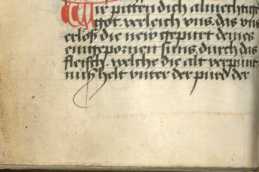 Wir pitten dich almechtige
got verleich vns das vns
erlöß die new gepurt deines
eingepornen suns durch das
fleisch welche die alt verpint
nuß helt vnter der purd der